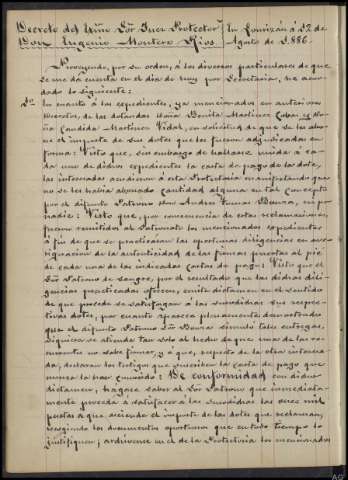 Decreto del Exmo. Sõr Juez Protector
Don Eugenio Montero Ríos.
En Lourizán á 22 de
Agosto de 1.886.
Proveyendo, por su orden, á los diversos particulares de que
se me da cuenta en el dia de hoy por Secretaría, he acor-
dado lo siguiente:
En cuanto á los expedientes, ya mencionados en anteriores
decretos, de las dotandas Doña Benita Martinez y Do-
ña Candida Martinez Vidal, en solicitud de que se les abo-
ne el importe de sus dotes que les fueron adjudicadas en
forma: Visto que, sin embargo de hallarse unida á ca-
da uno de dichos expedientes la carta de pago de la dote,
las interesadas acudieron á esta Protectoría manifestando que
no se les habia abonado cantidad alguna en tal concepto
por el difunto Patrono Don Andrés Boura, ni por
nadie: Visto que, por consecuencia de estas reclamaciones,
fueron remitidos al Patronato los mencionados expedientes
á fin de que se practicaran las oportunas diligencias en ave-
riguacion de la autenticidad de las firmas puestas al pié
de cada una de las indicadas cartas de pago: Visto que el
Sõr Patrono de sangre, por el resultado que las dichas dili-
gencias practicadas ofrecen, emite dictamen en el sentido
de que proceda se satisfagan á las susodichas sus respec-
tivas dotes, por cuanto aparece plenamente demostrado
que el difunto Patrono Sõr Boura simuló tales entregas,
siquiera se atienda tan solo al hecho de que una de las re-
clamantes no sabe firmar, y á que, respecto de la otra interesa-
da, declaran los testigos que suscriben la carta de pago que
nunca la han conocido: De conformidad con dicho
dictamen, hágase saber al Sõr Patrono que inmediata-
mente proceda á satisfacer á las susodichas las once mil
pesetas á que asciende el importe de las dotes que reclaman,
recogiendo los documentos oportunos que en todo tiempo lo
justifiquen; archívense en el de la Protectoría los mencionados